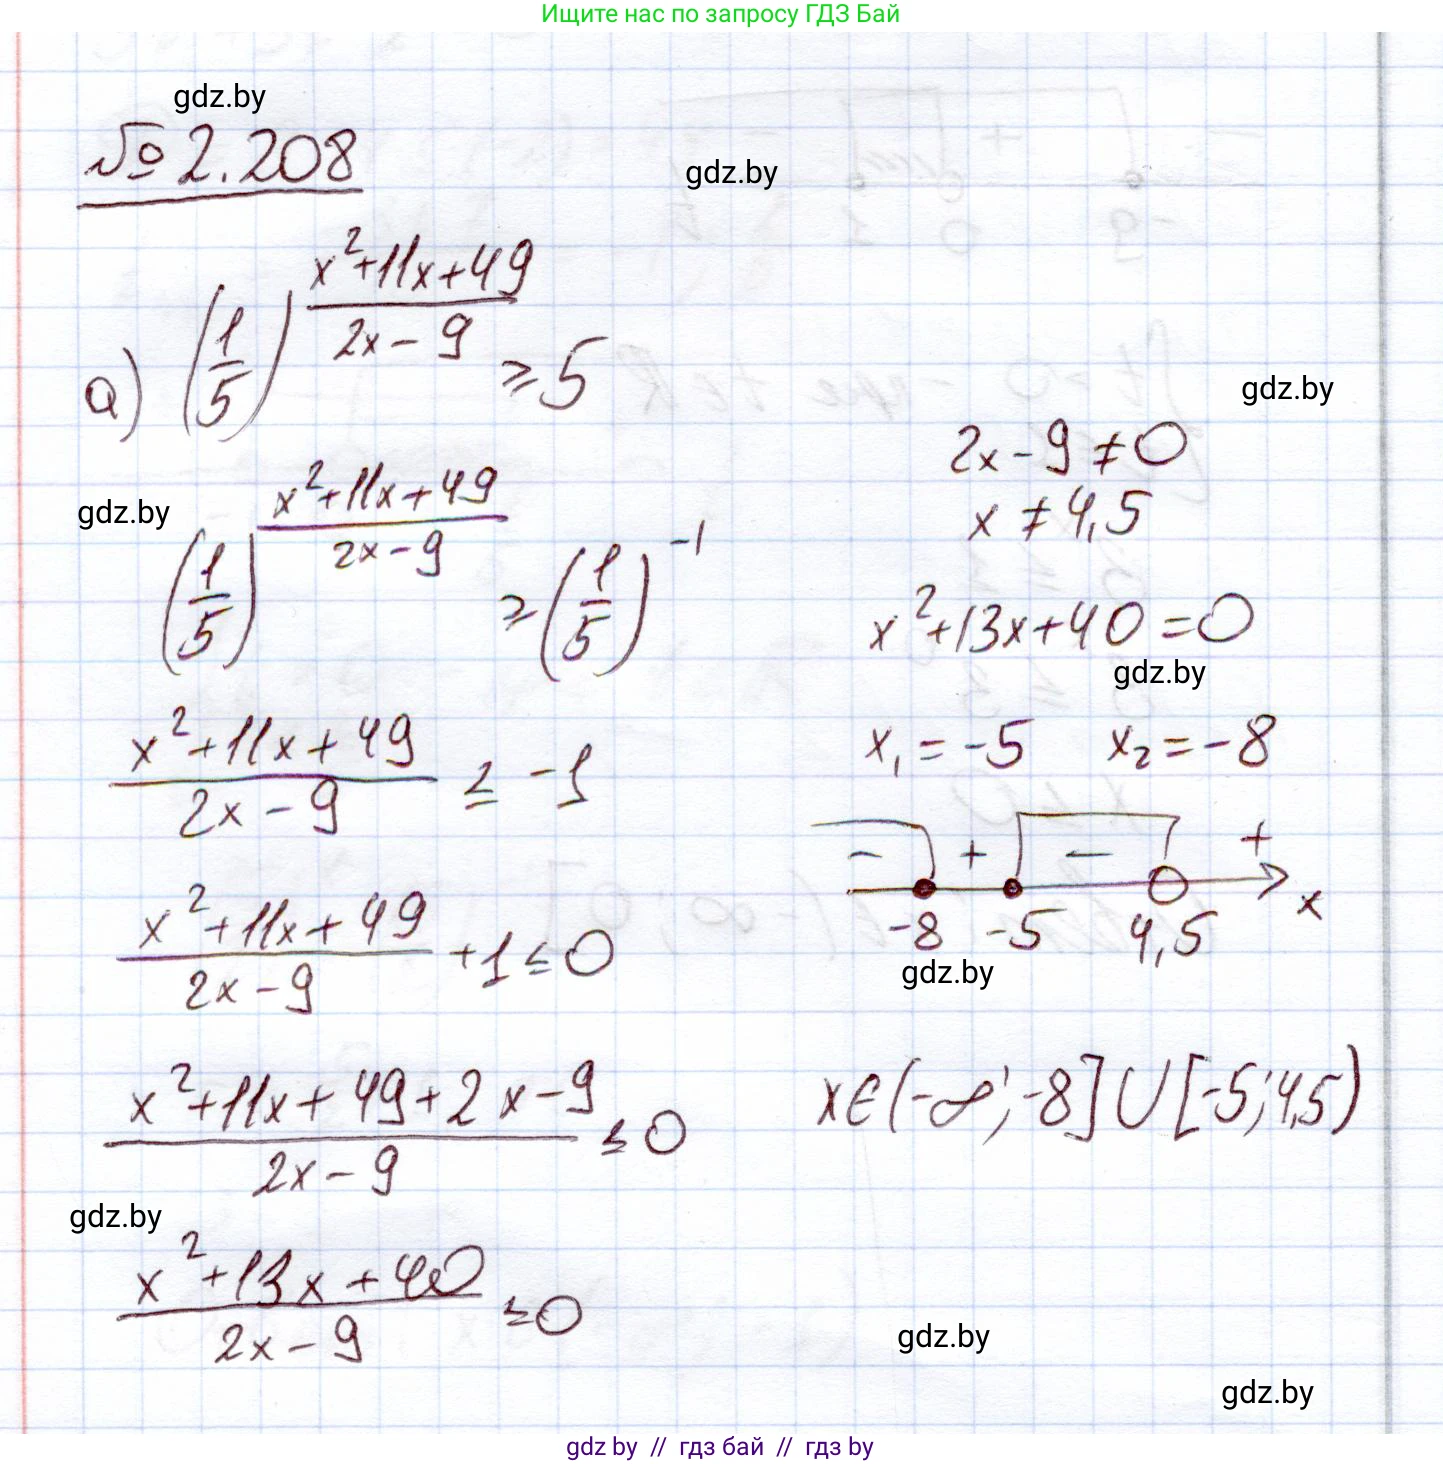 Ищите нас по запросу ГДЗ Бай
gdz.by
№ 2.208
gdz.by
а) (1/5)^((x²+11x+49)/(2x-9)) ≥ 5
gdz.by
(1/5)^((x²+11x+49)/(2x-9)) ≥ (1/5)^(-1)
gdz.by
(x²+11x+49)/(2x-9) ≤ -1
(x²+11x+49)/(2x-9) +1 ≤ 0
(x²+11x+49+2x-9)/(2x-9) ≤ 0
gdz.by
(x²+13x+40)/(2x-9) ≤ 0
2x-9 ≠ 0
x ≠ 4,5
x²+13x+40=0
gdz.by
x₁=-5 x₂=-8
- + - +
-8 -5 4,5 x
gdz.by
x∈(-∞;-8]∪[-5;4,5)
gdz.by
gdz.by
gdz by // гдз бай // гдз by